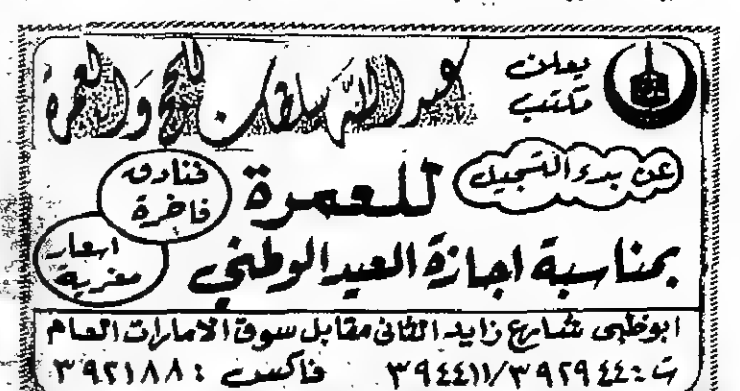 يعلن
مكتب
عبدالله سلطان للحج والعمرة
عن بدء التسجيل
للعمرة
فنادق
فاخرة
بمناسبة اجازة العيد الوطني
اسعار
مغرية
ابوظبي شارع زايد الثاني مقابل سوق الامارات العام
ت: ٣٩٢٩٤٤/٣٩٤٤١١ فاكس: ٣٩٢١٨٨